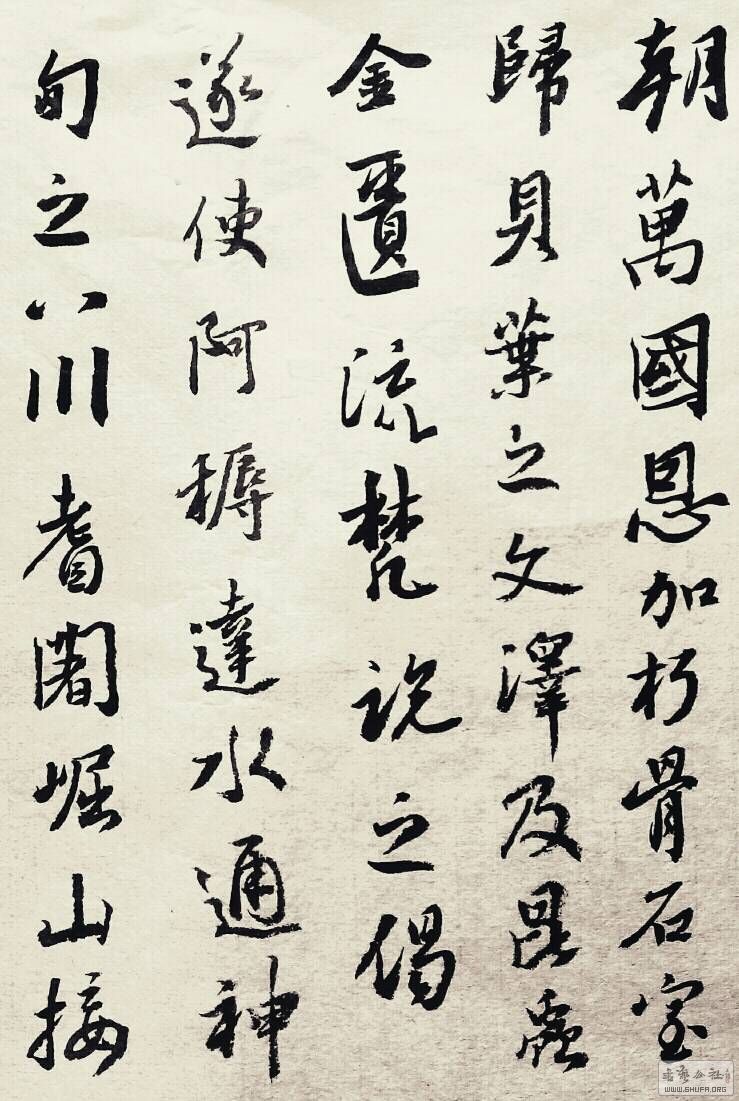 朝萬國恩加朽骨石室
歸貝葉之文澤及昆蟲
金匱流梵說之偈
遂使阿耨達水通神
甸之八川耆闍崛山接
書藝公社
WWW.SHUFA.ORG